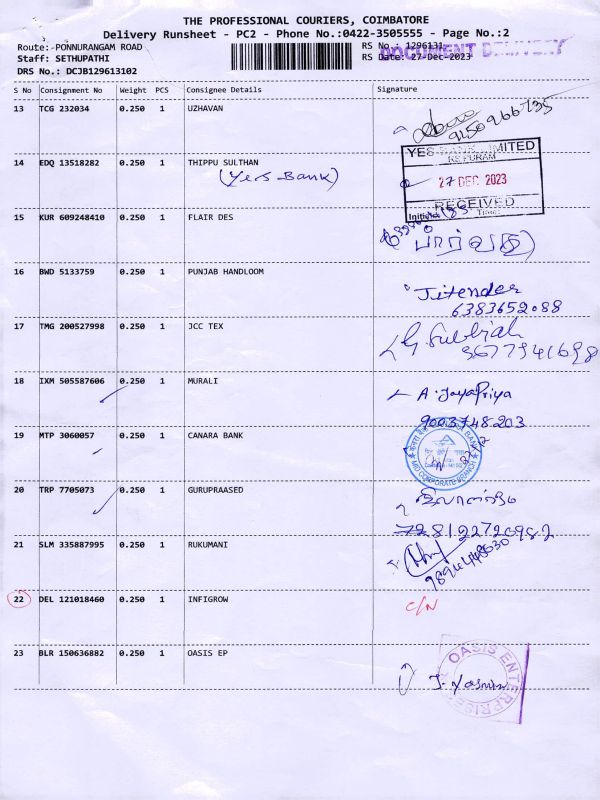 THE PROFESSIONAL COURIERS, COIMBATORE
Delivery Runsheet - PC2 - Phone No.:0422-3505555 - Page No.:2
Route: PONNURANGAM ROAD RS No.: 1296131 DOCUMENT DELIVERY
Staff: SETHUPATHI RS Date: 27-Dec-2023
DRS No.: DCJB129613102
S No Consignment No Weight PCS Consignee Details Signature
13 TCG 232034 0.250 1 UZHAVAN
9150966735
14 EDQ 13518282 0.250 1 THIPPU SULTHAN
(Yes Bank)
YES BANK LIMITED
RS PURAM
27 DEC 2023
RECEIVED
Initials Time:
15 KUR 609248410 0.250 1 FLAIR DES
பார்வதி
16 BWD 5133759 0.250 1 PUNJAB HANDLOOM
Jitender
6383652088
17 TMG 200527998 0.250 1 JCC TEX
G. Subbiah
18 IXM 505587606 0.250 1 MURALI
A. JayaPriya
9003748203
19 MTP 3060057 0.250 1 CANARA BANK
CORPORATE BRANCH
20 TRP 7705073 0.250 1 GURUPRAASED
21 SLM 335887995 0.250 1 RUKUMANI
22 DEL 121018460 0.250 1 INFIGROW
C/N
23 BLR 150636882 0.250 1 OASIS EP
OASIS ENTERPRISE
J. Yasmin